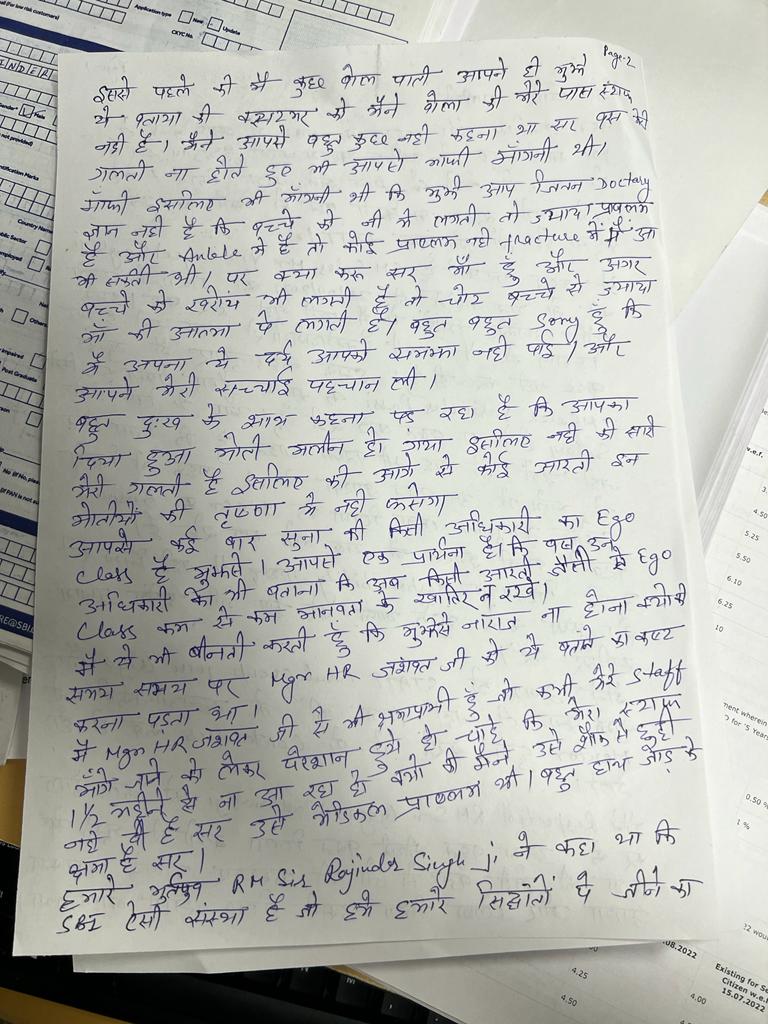 Page-2
इससे पहले की मैं कुछ बोल पाती आपने ही मुझे
ये बताया की कस्टमर को मैंने बोला की मेरे पास स्टाफ
नही है। मैंने आपसे बहुत कुछ नही कहना था सर बस मेरी
गलती ना होते हुए भी आपसे माफी माँगनी थी।
माफी इसलिए भी माँगनी थी कि मुझे आप जितना Doctary
ज्ञान नही है कि बच्चे को नी में लगती तो ज्यादा प्राब्लम
है और Ankle में है तो कोई प्राब्लम नही fracture में मैं आ
भी सकती थी। पर क्या करू सर माँ हूँ और अगर
बच्चे को खरोच भी लगती है तो चोट बच्चे से ज्यादा
माँ की आत्मा पे लगती है। बहुत बहुत Sorry हूँ कि
मैं अपना ये दर्द आपको समझा नही पाई। और
आपने मेरी सच्चाई पहचान ली।
बहुत दुःख के साथ कहना पड़ रहा है कि आपका
दिया हुआ मोती मलीन हो गया इसलिए नही की सारी
मेरी गलती है इसलिए की आगे से कोई आरती इन
मोतीयों की तृष्णा में नही फसेगा
आपसे कई बार सुना की किसी अधिकारी का Ego
Class है मुझसे। आपसे एक प्रार्थना है। कि बस उन
अधिकारी को भी बताना कि अब किसी आरती जैसी से Ego
Class कम से कम मानवता के खातिर न रखे।
मैं ये भी बीनती करती हूँ कि मुझसे नाराज ना होना क्योंकि
समय समय पर Mgr HR जशवत जी को ये बताने का कष्ट
करना पड़ता था।
मैं Mgr HR जशवत जी से भी क्षमाप्रार्थी हूँ जो कभी मेरे Staff
माँगे जाने को लेकर परेशान हुये हो चाहे कि मेरा स्टाफ
1½ महीने से ना आ रहा हो क्यों की मैंने उसे शौक से छुट्टी
नही दी है सर उसे मेडिकल प्राब्लम थी। बहुत हाथ जोड़ के
क्षमा है सर।
हमारे भूतपूर्व RM Sir Rajinder Singh ji ने कहा था कि
SBI ऐसी संस्था है जो हमे हमारे सिद्धांतों पे जीने का
Application type
New
Update
CKYC No.
4.50
5.50
6.10
6.25
10
0.50 %
1 %
4.25
4.50
4.00
.08.2022
Existing for Se
Citizen w.e.f
15.07.2022